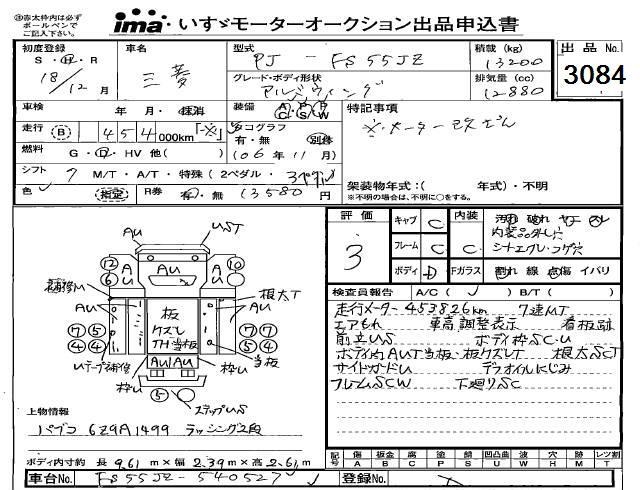 ※赤太枠内は必ず
ボールペンで
ご記入下さい。
ima いすゞモーターオークション出品申込書
初度登録 S・H・R 18/12 月
車名 三菱
型式 PJ - FS55JZ
グレード・ボディ形状 アルミウィング
積載 (kg) 13200
排気量 (cc) 12880
出品 No. 3084
車検 年 月・抹消
装備 A/C P/S P/W
特記事項
走行 B 454 000km「-※」
タコグラフ 有・無 別体
(06年11月)
※・メーター改ざん
燃料 G・D・HV 他( )
シフト 7 M/T・A/T・特殊(2ペダル・3ペダル)
架装物年式:( 年式)・不明
※不明の場合は、不明に○をする。
色 指定 R券 有・無 13580 円
評価 3
キャブ C
フレーム C
ボディ D
内装 C
Fガラス
汚れ 破れ ヤニ スレ
内装品外し穴
シナエグレ・コゲ穴
割れ 線 点傷 イバリ
検査員報告 A/C( ) B/T( )
走行メーター453826km 7速MT
エアもれ 車高調整表示 看板跡
前立US ボディ枠SC・U
ボディ内AUT当板・板ケズレT 根太SCT
サイドガードU デフオイルにじみ
フレームSCW 下廻りSC
AU UST
12 6 AU AU AU 10
補修M 根太T
AU AU
7 5 4 4
板
ケズレ
TH当板
7 5 7 4 4
当板
Uテープ補修 AU/AU
枠U 枠U
5 ステップUS
上物情報
パブコ 6Z9A1499 ラッシング2段
ボディ内寸約 長 9.61 m×幅 2.39 m×高 2.61 m
記号 傷 A 板金 B 腐 C 塗 P 錆 S 凹凸曲 U 波 W 穴 H 跡 M レツ割 T
車台No. FS55JZ-540527
登録No.